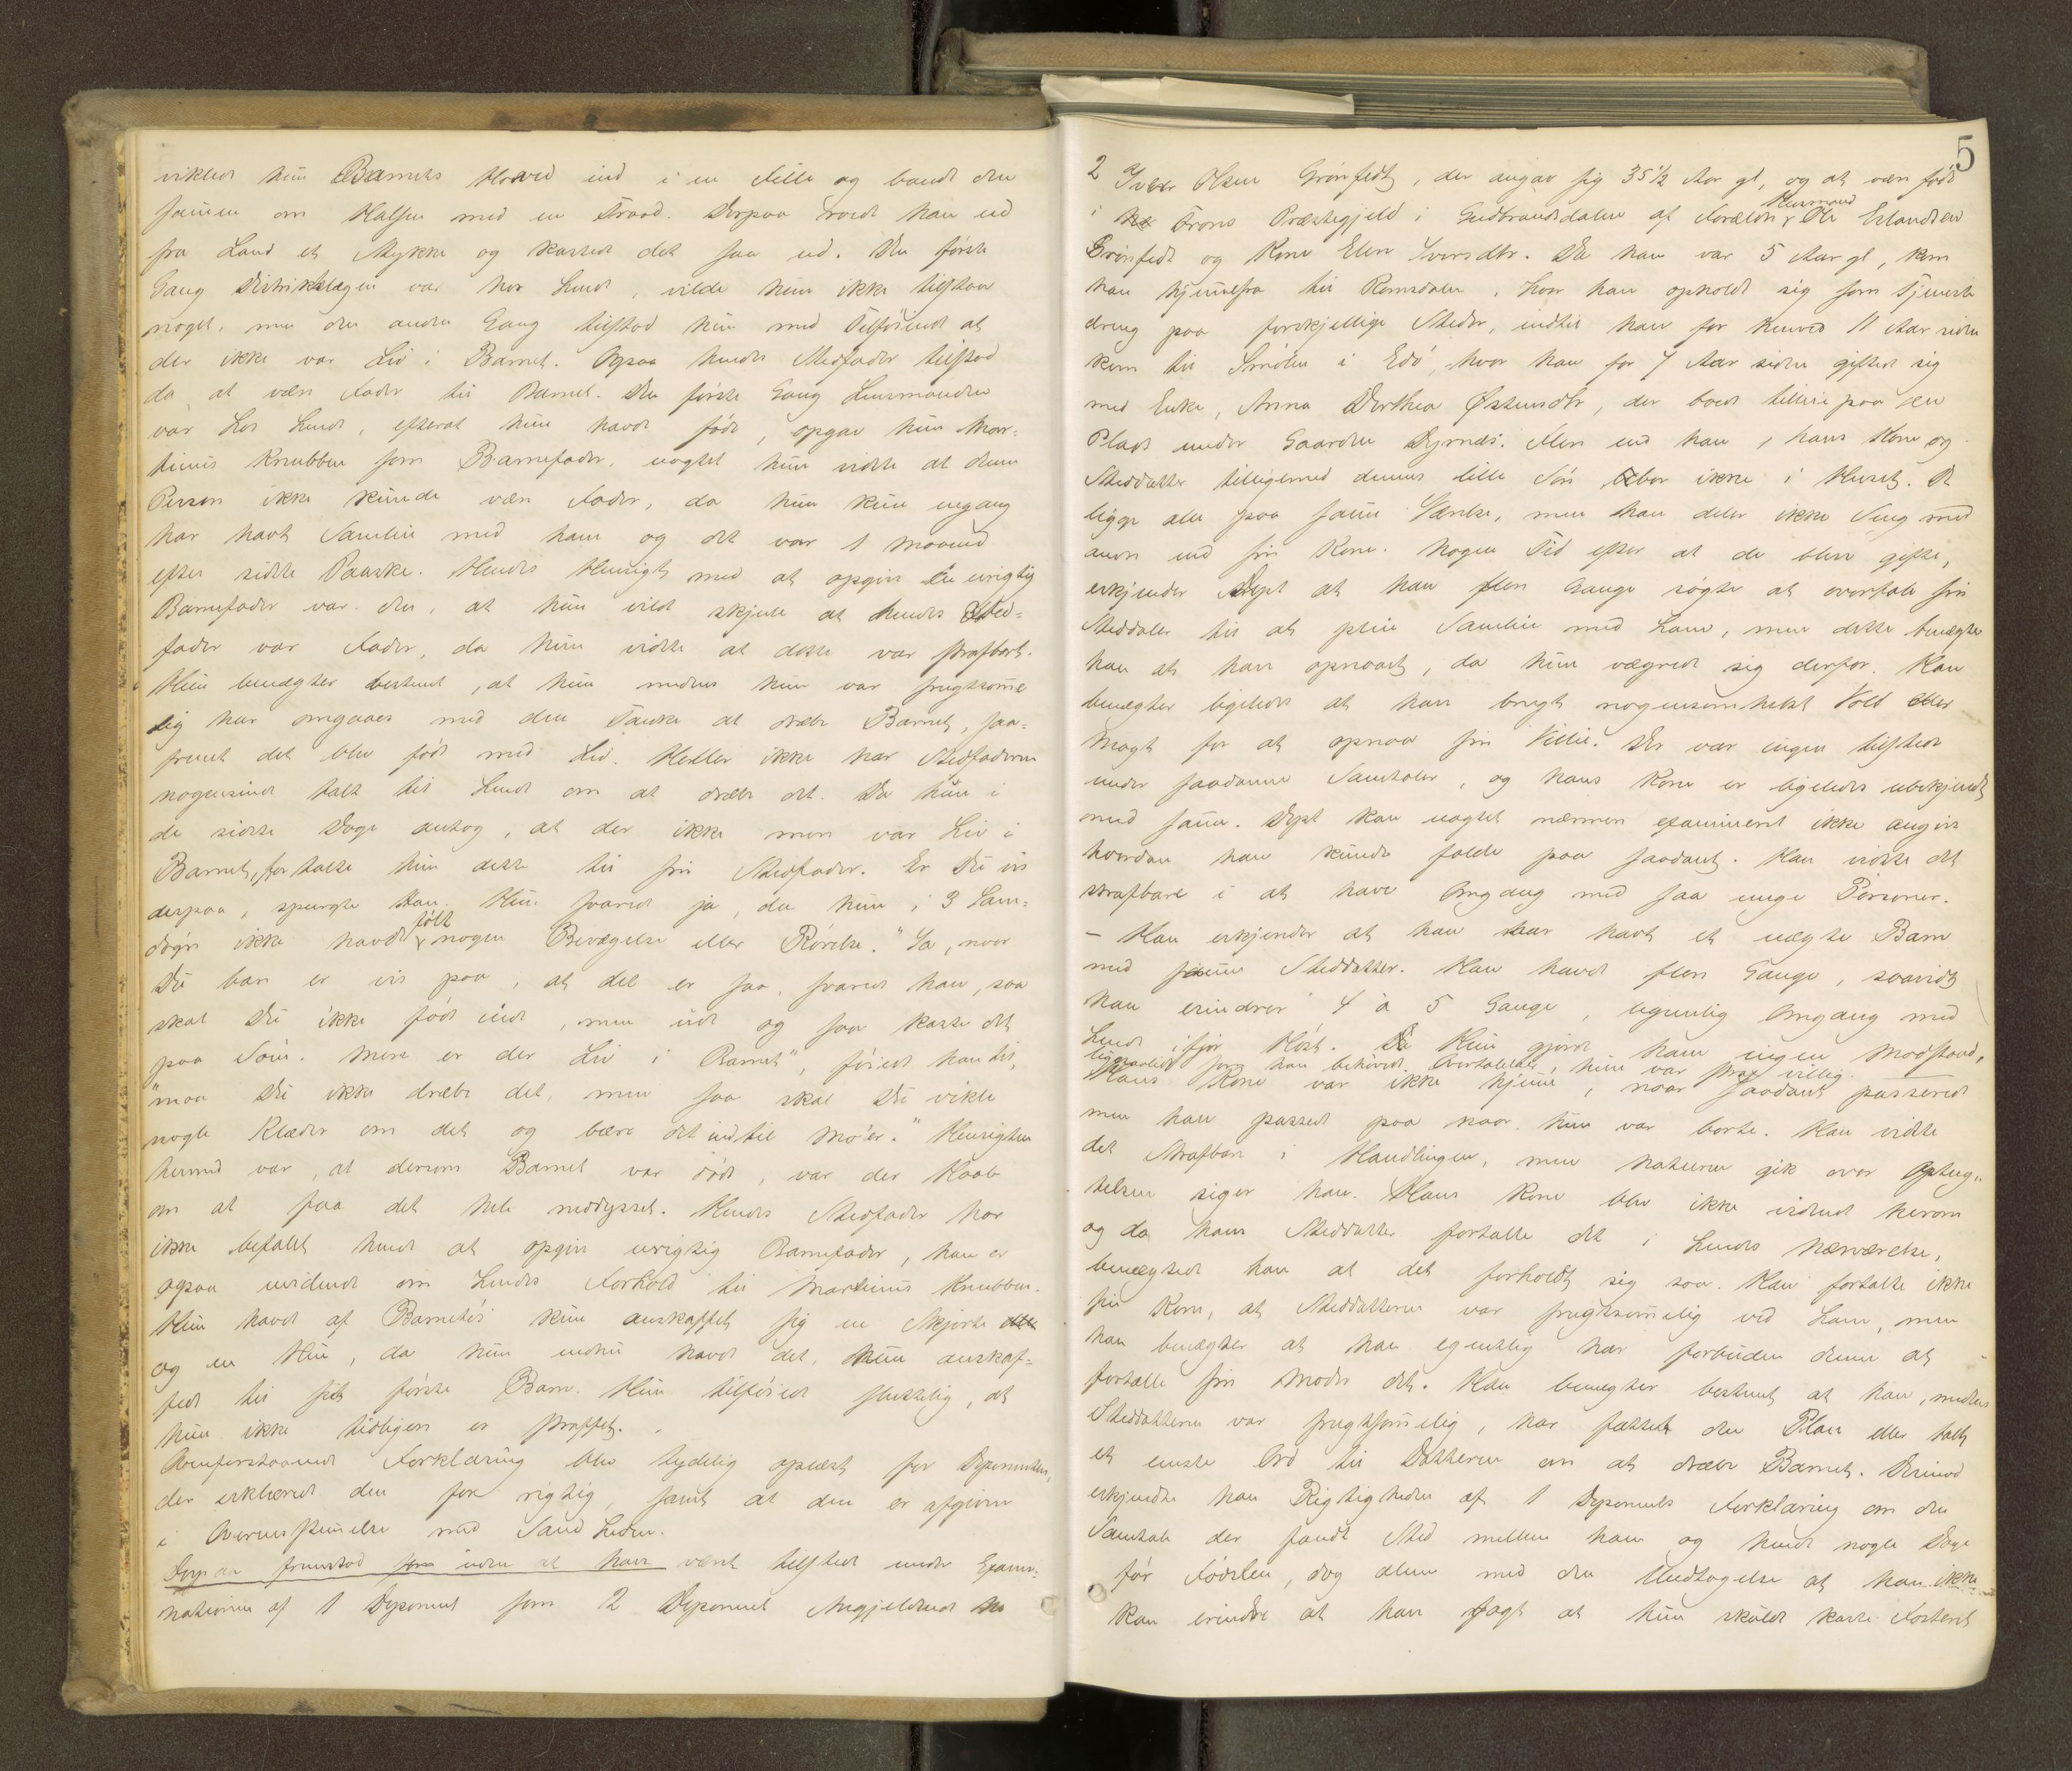 viklede hun Barnets Hoved ind i en Fille og bandt den
sammen om Halsen med en Traad. Derpaa roede han ud
fra Land et Stykke og kastede det saa ud. Den første
Gang Distriktslægen var hos hende, vilde hun ikke tilstaa
noget, men den anden Gang tilstod hun med Tilføiende at
der ikke var Liv i Barnet. Ogsaa hendes Stedfader tilstod
da at være Fader til Barnet. Den første Gang Lensmanden
var hos hende, efterat hun havde født, opgav hun Mar-
tinus Knubben som Barnefader, uagtet hun vidste at denne
Person ikke kunde være Fader, da hun kun engang
har havt Samleie med ham og det var 1 Maaned
efter sidste Paaske. Hendes Hensigt med at opgive en urigtig
Barnefader var den, at hun vilde skjule at hendes Sted-
fader var Fader, da hun vidste at dette var strafbart.
Hun benægter bestemt, at hun medens hun var frugtsomme-
lig har omgaaes med den Tanke at dræbe Barnet, saa-
fremt det blev født med Liv. Heller ikke har Stedfaderen
nogensinde talt til hende om at dræbe det. Da hun i
de sidste Dage antog, at der ikke mere var Liv i
Barnet, fortalte hun dette til sin Stedfader. Er Du vis
derpaa, spurgte han. Hun svarede ja, da hun i 3 Sam-
døgn ikke havde følt nogen Bevægelse eller Rørelse. "Ja, naar
Du bare er vis paa, at det er saa, svarede han, saa
skal Du ikke føde inde, men ude og saa kaste det
paa Søen. Men er der Liv i Barnet", føiede han til,
"maa Du ikke dræbe det, men saa skal Du vikle
nogle Klæder om det og bære det ind til Mo'er." Hensigten
hermed var, at dersom Barnet var dødt, var der Haab
om at faa det hele neddysset. Hendes Stedfader har
ikke befalet hende at opgive urigtig Barnefader, han er
ogsaa uvidende om hendes Forhold til Martinus Knubben.
Hun havde af Barnetøi kun anskaffet sig en Skjorte
og en Hue, da hun endnu havde det, hun anskaf-
fede til sit første Barn. Hun tilføiede sluttelig, at
hun ikke tidligere er straffet.
Ovenforstaaende Forklaring blev tydelig oplæst for Deponenten,
der erklærede den for rigtig, samt at den er afgiven
i Overensstemmelse med Sandheden.
Derpaa fremstod uden at have været tilstede under Exami-
nationen af 1 Deponent som 2 Deponent Angjeldende
5
2 Iver Olsen Grønfedt, der angav sig 35 1/2 Aar gl, og at være født
i Frons Præstegjeld i Gudbrandsdalen af Forældre Husmand Ole Erlandsen
Grønfedt og Kone Elen Iversdtr. Da han var 5 Aar gl, kom
han hjemmefra til Romsdalen, hvor han opholdt sig som Tjeneste-
dreng paa forskjellige Steder, indtil han for henved 11 Aar siden
kom til Smølen i Edø, hvor han for 7 Aar siden giftede sig
med Enke, Anna Dorthea Østensdtr, der boede tilleie paa en
Plads under Gaarden Dyrnæs. Flere end han, hans Kone og
Steddatter tilligemed dennes lille Søn bor ikke i Huset. De
ligge alle paa samme Værelse, men han deler ikke Seng med
anden end sin Kone. Nogen Tid efter at de blev gifte,
erkjender Dept at han flere Gange søgte at overtale sin
Steddatter til at pleie Samleie med ham, men dette benægter
han at have opnaaet, da hun vægrede sig derfor. Han
benægter ligeledes at have brugt nogensomhelst Vold eller
Magt for at opnaa sin Villie. Der var ingen tilstede
under saadanne Samtaler, og hans Kone er ligeledes ubekjendt
med samme. Dept kan uagtet nærmere examineret ikke angive
hvordan han kunde falde paa saadant. Han vidste det
strafbare i at have Omgang med saa unge Personer.
– Han erkjender at han har havt et uægte Barn
med samme Steddatter. Han havde flere Gange, saavidt
han erindrer 4 à 5 Gange, legemlig Omgang med
hende ifjor Høst. Hun gjorde ham ingen Modstand,
ligesaalidt som han behøvede Overtalelser, hun var strax villig.
Hans Kone var ikke hjemme, naar saadant passerede
men han passede paa naar hun var borte. Han vidste
det Strafbare i Handlingen, men Naturen gik over Optug-
telsen siger han. Hans Kone blev ikke vidende herom
og da hans Steddatter fortalte det i hendes Nærværelse,
benægtede han at det forholdt sig saa. Han fortalte ikke
sin Kone, at Steddatteren var frugtsommelig ved ham, men
han benægter at han egentlig har forbuden denne at
fortælle sin Moder det. Han benægter bestemt at han, medens
Steddatteren var frugtsommelig, har fattet den Plan eller talt
et eneste Ord til Datteren om at dræbe Barnet. Derimod
erkjendte han Rigtigheden af 1 Deponents Forklaring om den
Samtale der fandt Sted mellem ham og hende nogle Dage
før Fødslen, dog alene med den Undtagelse at han ikke
kan erindre at have sagt at hun skulde kaste Fosteret